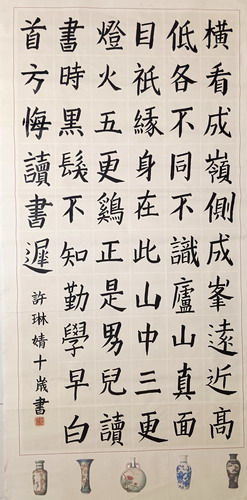 橫看成嶺側成峯遠近高
低各不同不識廬山真面
目祇緣身在此山中三更
燈火五更鷄正是男兒讀
書時黑髮不知勤學早白
首方悔讀書遲
許琳婧十歲書